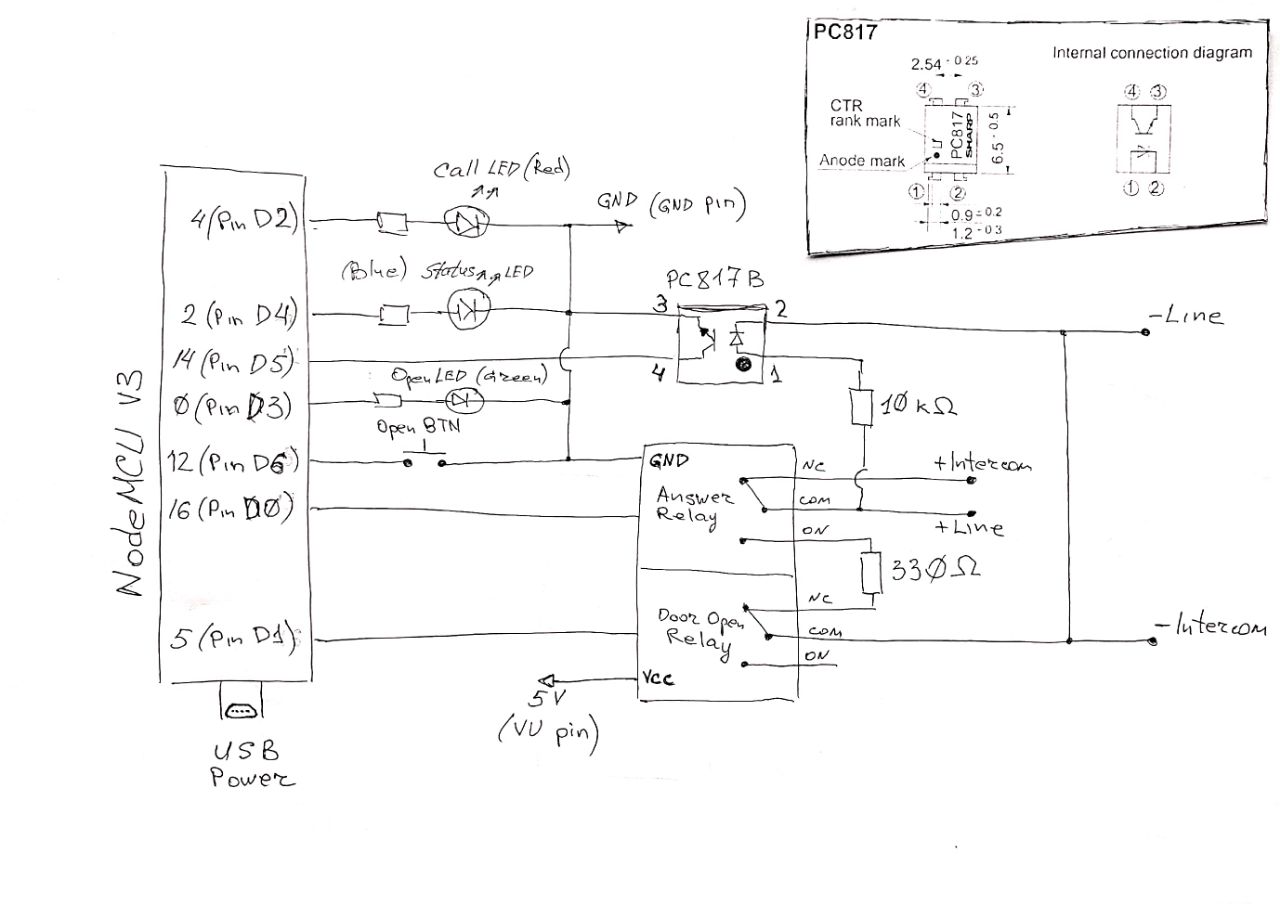 PC817
Internal connection diagram
2.54 - 0.25
④ ③
CTR
rank mark
PC817
SHARP
6.5 - 0.5
Anode mark
① ②
0.9 ± 0.2
1.2 - 0.3
④ ③
① ②
NodeMCU V3
4 (Pin D2)
Call LED (Red)
GND (GND pin)
(Blue) Status LED
2 (Pin D4)
PC817B
3
2
4
1
-Line
14 (Pin D5)
Open LED (Green)
0 (Pin D3)
10 kΩ
Open BTN
12 (Pin D6)
GND
NC
+Intercom
16 (Pin D0)
Answer
Relay
COM
+Line
ON
330Ω
NC
5 (Pin D1)
Door Open
Relay
COM
-Intercom
ON
VCC
5V
(VU pin)
USB
Power